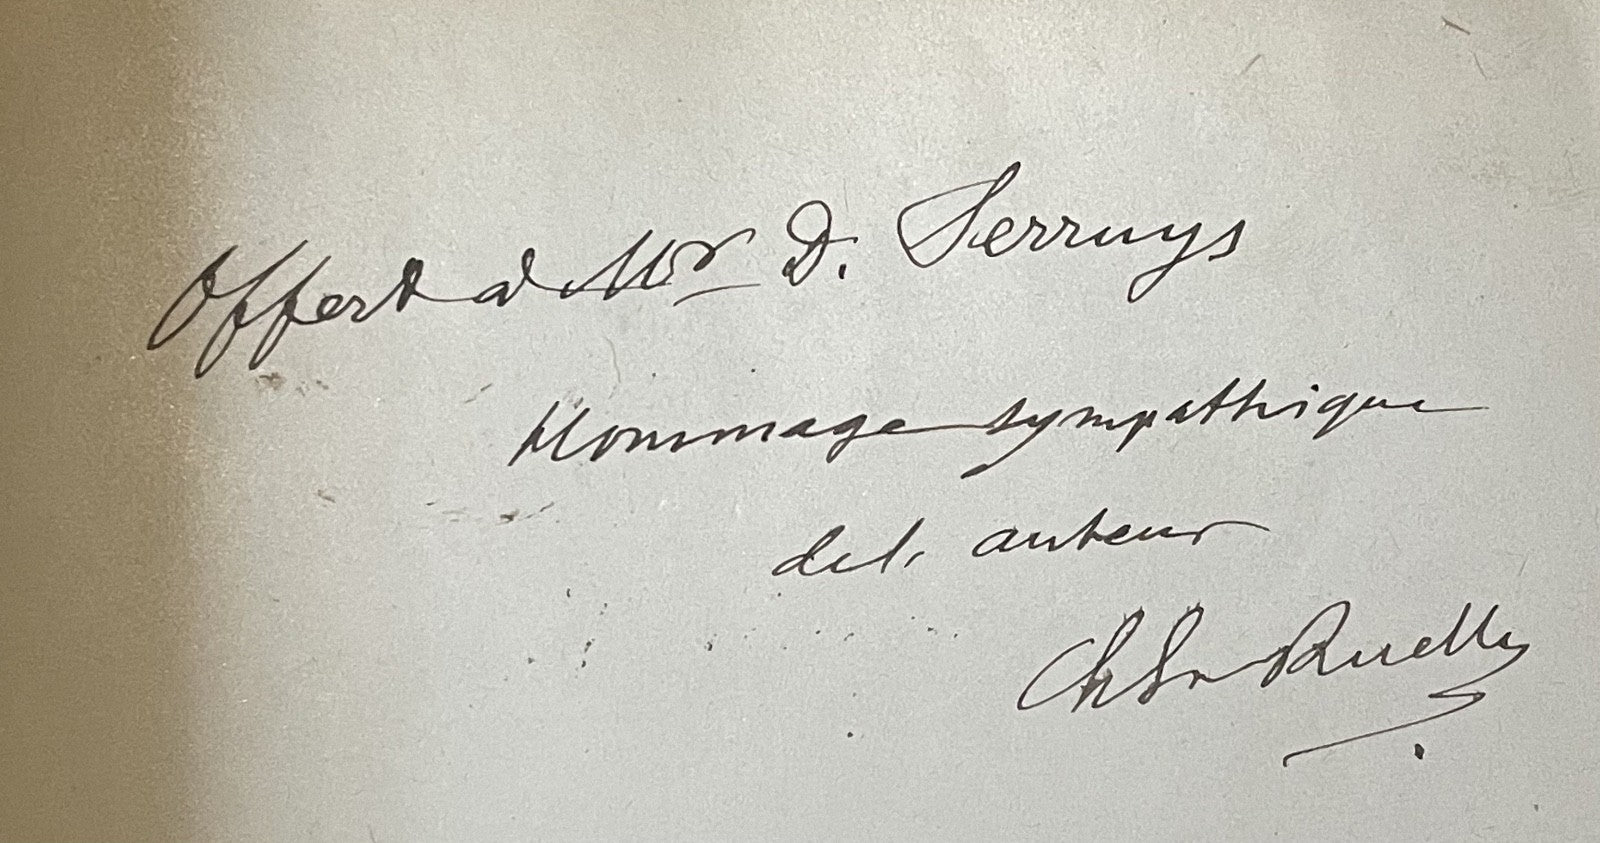 Offert à Mr D. Serruys
Hommage sympathique
de l'auteur
Ch Em Ruelle